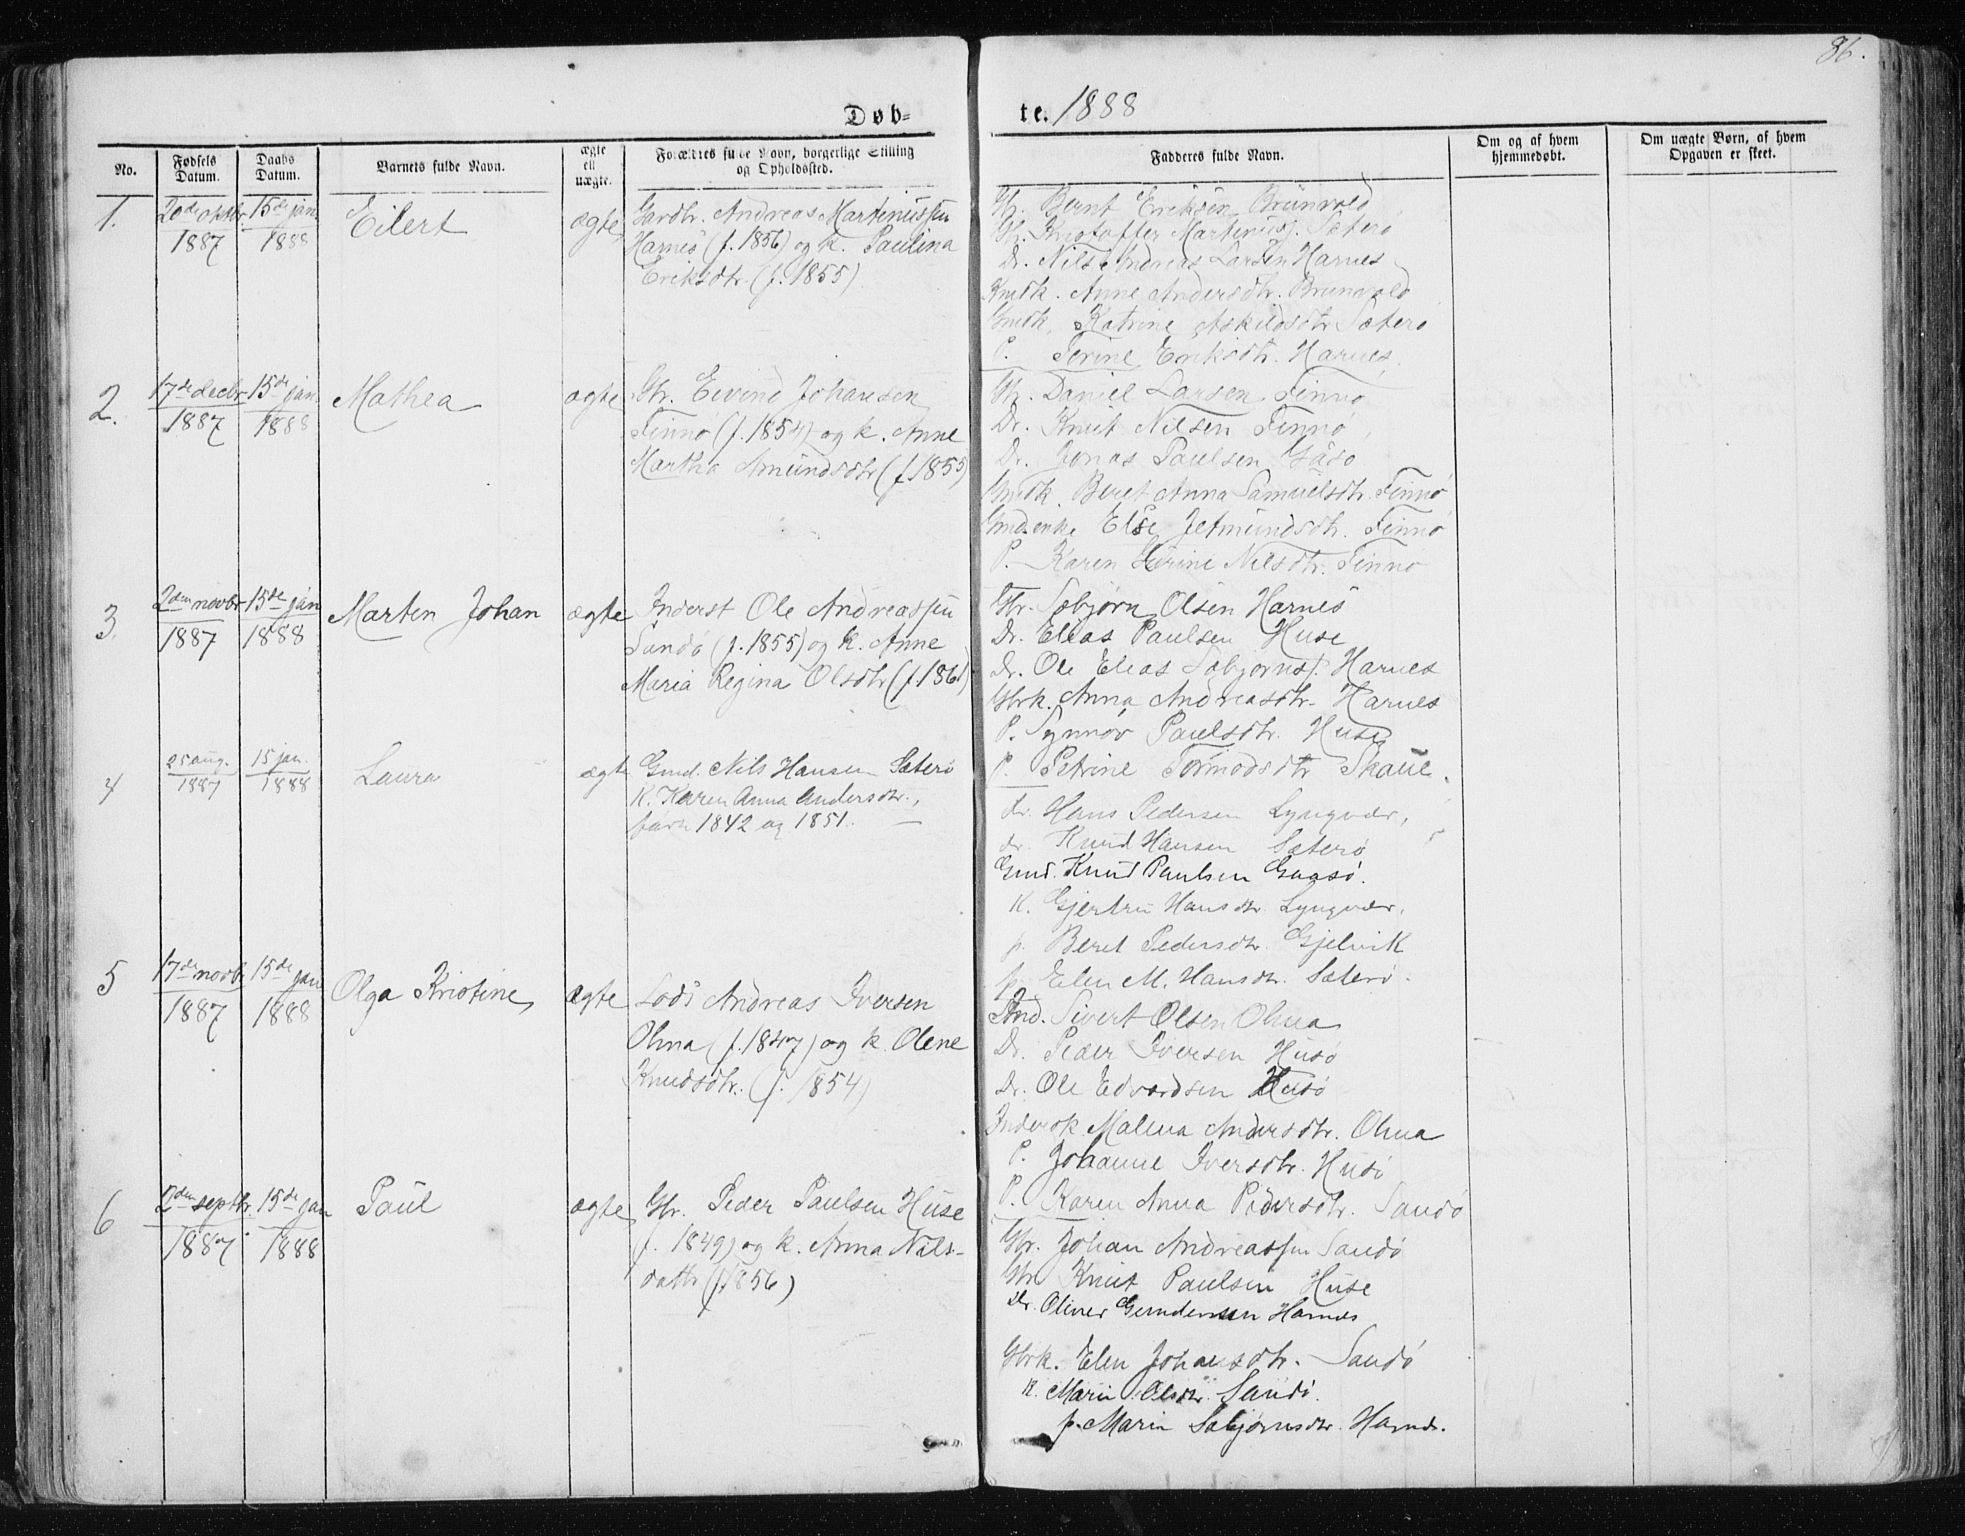 86.
Døb=
te. 1888
No.
Fødsels Datum.
Daabs Datum.
Barnets fulde Navn.
ægte ell uægte.
Forældres fulde Navn, borgerlige Stilling
og Opholdssted.
Fadderes fulde Navn.
Om og af hvem
hjemmedøbt.
Om uægte Børn, af hvem
Opgaven er skeet.
1. 20de oktbr 1887 15de jan 1888 Eilert ægte
Gardbr. Andreas Martinussen
Harnes (f. 1856) og k. Paulina
Eriksdtr. (f. 1855)
Gbr. Bernt Eriksen Brunvold
Gbr. Kristoffer Martinusf. Sæterø
Dr. Nils Andreas Larsen Harnes
Gmdk. Anne Andersdtr. Brunvold
Gmdk. Katrine Askildsdtr Sæterø
P. Serine Eriksdtr. Harnes
2. 17de decbr 1887 15de jan 1888 Mathea ægte
Gbr. Eivind Johansen
Finnø (f. 1854) og k. Anne
Martha Amundsdtr (f. 1855)
Gbr. Daniel Larsen Finnø
Dr. Knut Nilsen Finnø
Dr. Jonas Paulsen Gåsø
Gmdk. Beret Anna Samuelsdtr. Finnø
Gmd.enke Else Jetmundsdtr. Finnø
P. Karen Nilsdtr. Finnø
3. 2den novbr 1887 15de jan 1888 Marten Johan ægte
Inderst Ole Andreassen
Sandø (f. 1855) og k. Anne
Maria Regina Olsdtr (f. 1861)
Gbr. Sæbjørn Olsen Harnes
Dr. Elias Paulsen Huse
Dr. Ole Elias Sæbjørnsf. Harnes
Gbrk. Anna Andreasdtr. Harnes
P. Synnøv Paulsdtr. Huse
P. Petrine Tormodsdtr Skaue
4 25 aug. 1887 15 jan. 1888 Laura ægte
Gmd. Nils Hansen Sæterø
K. Karen Anna Andersdtr.,
født 1842 og 1851.
dr. Hans Pedersen Lyngvær,
dr. Knud Hansen Sæterø
Gmd. Knud Paulsen Gaasø.
K. Gjertru Hansdtr. Lyngvær.
p. Beret Pedersdtr. Gjelvik
p. Elen M. Hansdtr. Sæterø.
5 17de novb. 1887 15de jan 1888 Olga Kristine ægte
Lods Andreas Iversen
Olma (f. 1847) og k. Olene
Knudsdtr. (f. 1854)
Ind. Sivert Olsen Olma
Dr. Peder Iversen Husø
Dr. Ole Edvardsen Husø
Indersk Malena Andersdtr. Olma
P. Johanne Iversdtr. Husø
P. Karen Anna Pedersdtr. Sandø
6 2den septbr. 1887 15de jan 1888 Paul ægte
Gbr. Peder Paulsen Huse
(f. 1849) og k. Anna Nils-
datter (f. 1856)
Gbr. Johan Andreassen Sandø
Gbr Knut Paulsen Huse
Dr. Oliver Gundersen Harnes
Gbrk. Elen Johansdtr. Sandø
K. Marie Olsdtr. Sandø.
p. Marie Sæbjørnsdtr. Harnes.